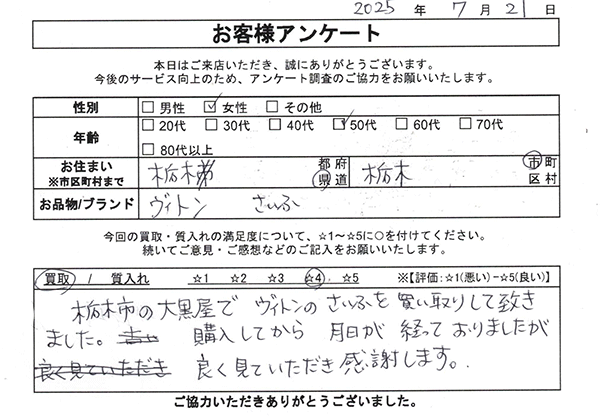 2025 年 7 月 21 日
お客様アンケート
本日はご来店いただき、誠にありがとうございます。
今後のサービス向上のため、アンケート調査のご協力をお願いいたします。
性別 □ 男性 ☑ 女性 □ その他
年齢 □ 20代 □ 30代 □ 40代 ☑ 50代 □ 60代 □ 70代
□ 80代以上
お住まい ※市区町村まで 栃木 都府県道 栃木 市町区村
お品物/ブランド ヴィトン さいふ
今回の買取・質入れの満足度について、☆1～☆5に○を付けてください。
続いてご意見・ご感想などのご記入をお願いいたします。
買取 / 質入れ ☆1 ☆2 ☆3 ☆4 ☆5 ※【評価:☆1(悪い)-☆5(良い)】
栃木市の大黒屋で ヴィトンの さいふを 買い取りして致き
ました。 購入してから 月日が 経って おりましたが
良く見ていただき 良く見ていただき 感謝します。
ご協力いただきありがとうございました。